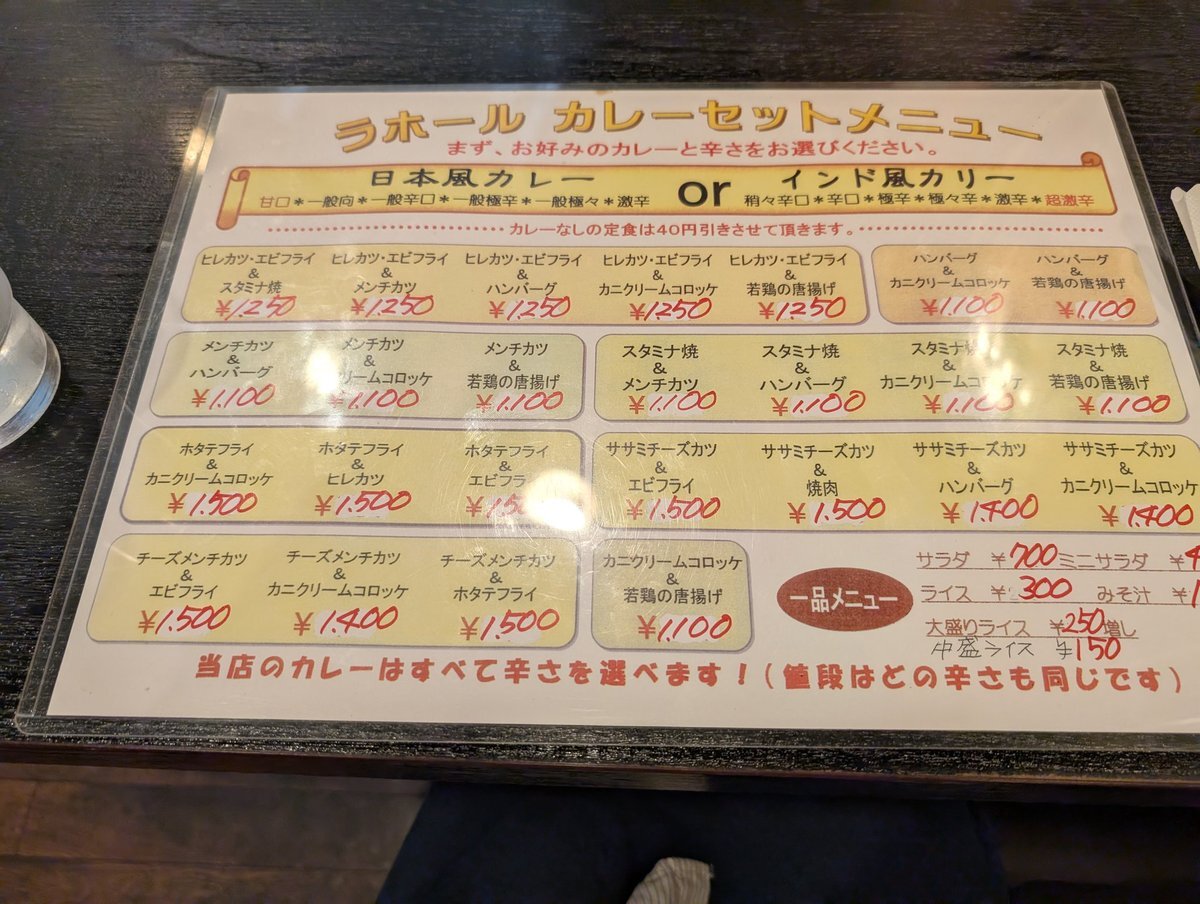 ラホール カレーセットメニュー
まず、お好みのカレーと辛さをお選びください。
日本風カレー or インド風カリー
甘口＊一般向＊一般辛口＊一般極辛＊一般極々＊激辛
稍々辛口＊辛口＊極辛＊極々辛＊激辛＊超激辛
カレーなしの定食は40円引きさせて頂きます。
ヒレカツ・エビフライ
&
スタミナ焼
¥1.250
ヒレカツ・エビフライ
&
メンチカツ
¥1.250
ヒレカツ・エビフライ
&
ハンバーグ
¥1.250
ヒレカツ・エビフライ
&
カニクリームコロッケ
¥1.250
ヒレカツ・エビフライ
&
若鶏の唐揚げ
¥1.250
ハンバーグ
&
カニクリームコロッケ
¥1.100
ハンバーグ
&
若鶏の唐揚げ
¥1.100
メンチカツ
&
ハンバーグ
¥1.100
メンチカツ
&
クリームコロッケ
¥1.100
メンチカツ
&
若鶏の唐揚げ
¥1.100
スタミナ焼
&
メンチカツ
¥1.100
スタミナ焼
&
ハンバーグ
¥1.100
スタミナ焼
&
カニクリームコロッケ
¥1.100
スタミナ焼
&
若鶏の唐揚げ
¥1.100
ホタテフライ
&
カニクリームコロッケ
¥1.500
ホタテフライ
&
ヒレカツ
¥1.500
ホタテフライ
&
エビフライ
ササミチーズカツ
&
エビフライ
¥1.500
ササミチーズカツ
&
焼肉
¥1.500
ササミチーズカツ
&
ハンバーグ
¥1.400
ササミチーズカツ
&
カニクリームコロッケ
¥1.400
チーズメンチカツ
&
エビフライ
¥1.500
チーズメンチカツ
&
カニクリームコロッケ
¥1.400
チーズメンチカツ
&
ホタテフライ
¥1.500
カニクリームコロッケ
&
若鶏の唐揚げ
¥1.100
一品メニュー
サラダ ¥700 ミニサラダ ¥
ライス ¥300 みそ汁 ¥
大盛りライス ¥250増し
中盛ライス ¥150
当店のカレーはすべて辛さを選べます！（値段はどの辛さも同じです）